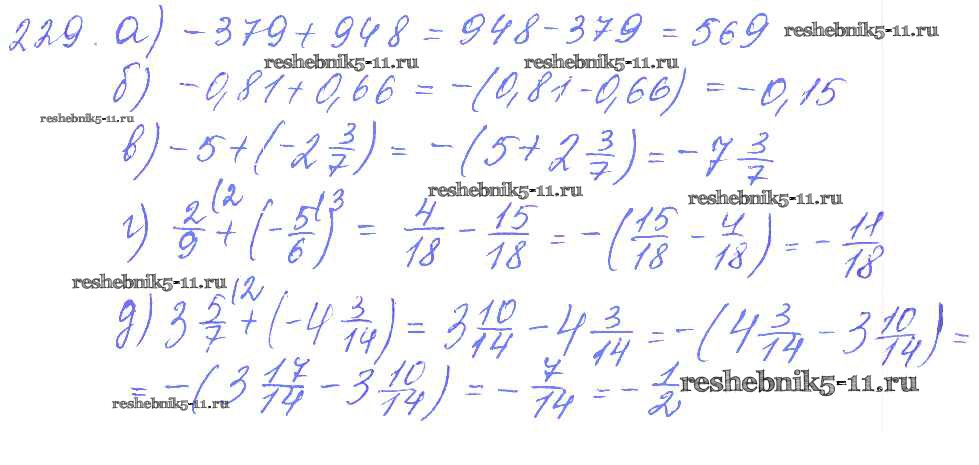 229. а) -379 + 948 = 948 - 379 = 569 reshebnik5-11.ru
reshebnik5-11.ru reshebnik5-11.ru
б) -0,81 + 0,66 = -(0,81 - 0,66) = -0,15
reshebnik5-11.ru
в) -5 + (-2 3/7) = -(5 + 2 3/7) = -7 3/7
reshebnik5-11.ru reshebnik5-11.ru
г) 2/9 (2 + (-5/6 (3) = 4/18 - 15/18 = -(15/18 - 4/18) = -11/18
reshebnik5-11.ru
д) 3 5/7 (2 + (-4 3/14) = 3 10/14 - 4 3/14 = -(4 3/14 - 3 10/14) =
= -(3 17/14 - 3 10/14) = -7/14 = -1/2 reshebnik5-11.ru
reshebnik5-11.ru